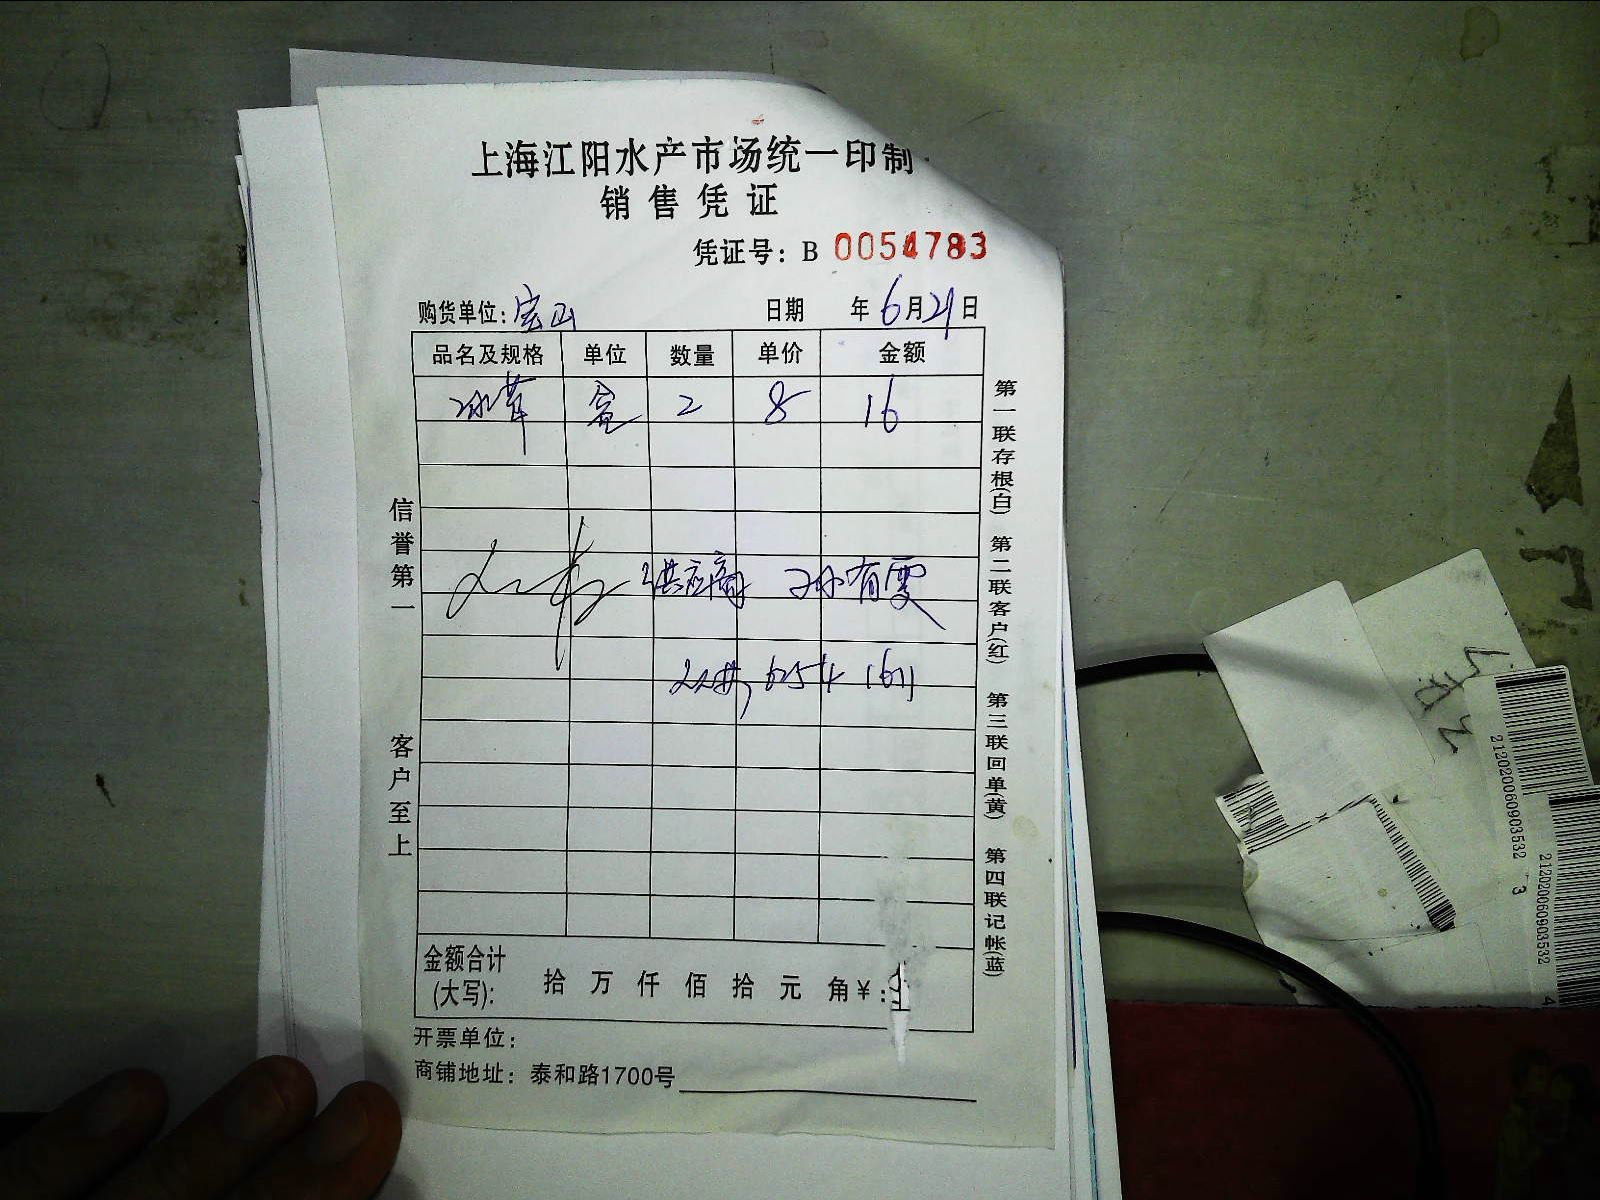 上海江阳水产市场统一印制
销售凭证
凭证号：B 0054783
购货单位：宝山 日期 年6月21日
品名及规格 单位 数量 单价 金额
冰草 盒 2 8 16
供应商 孙有雯
6254 1611
金额合计
(大写)： 拾 万 仟 佰 拾 元 角¥：
开票单位：
商铺地址：泰和路1700号
信誉第一 客户至上
第一联存根(白) 第二联客户(红) 第三联回单(黄) 第四联记帐(蓝)
212020060903532 3
212020060903532 4